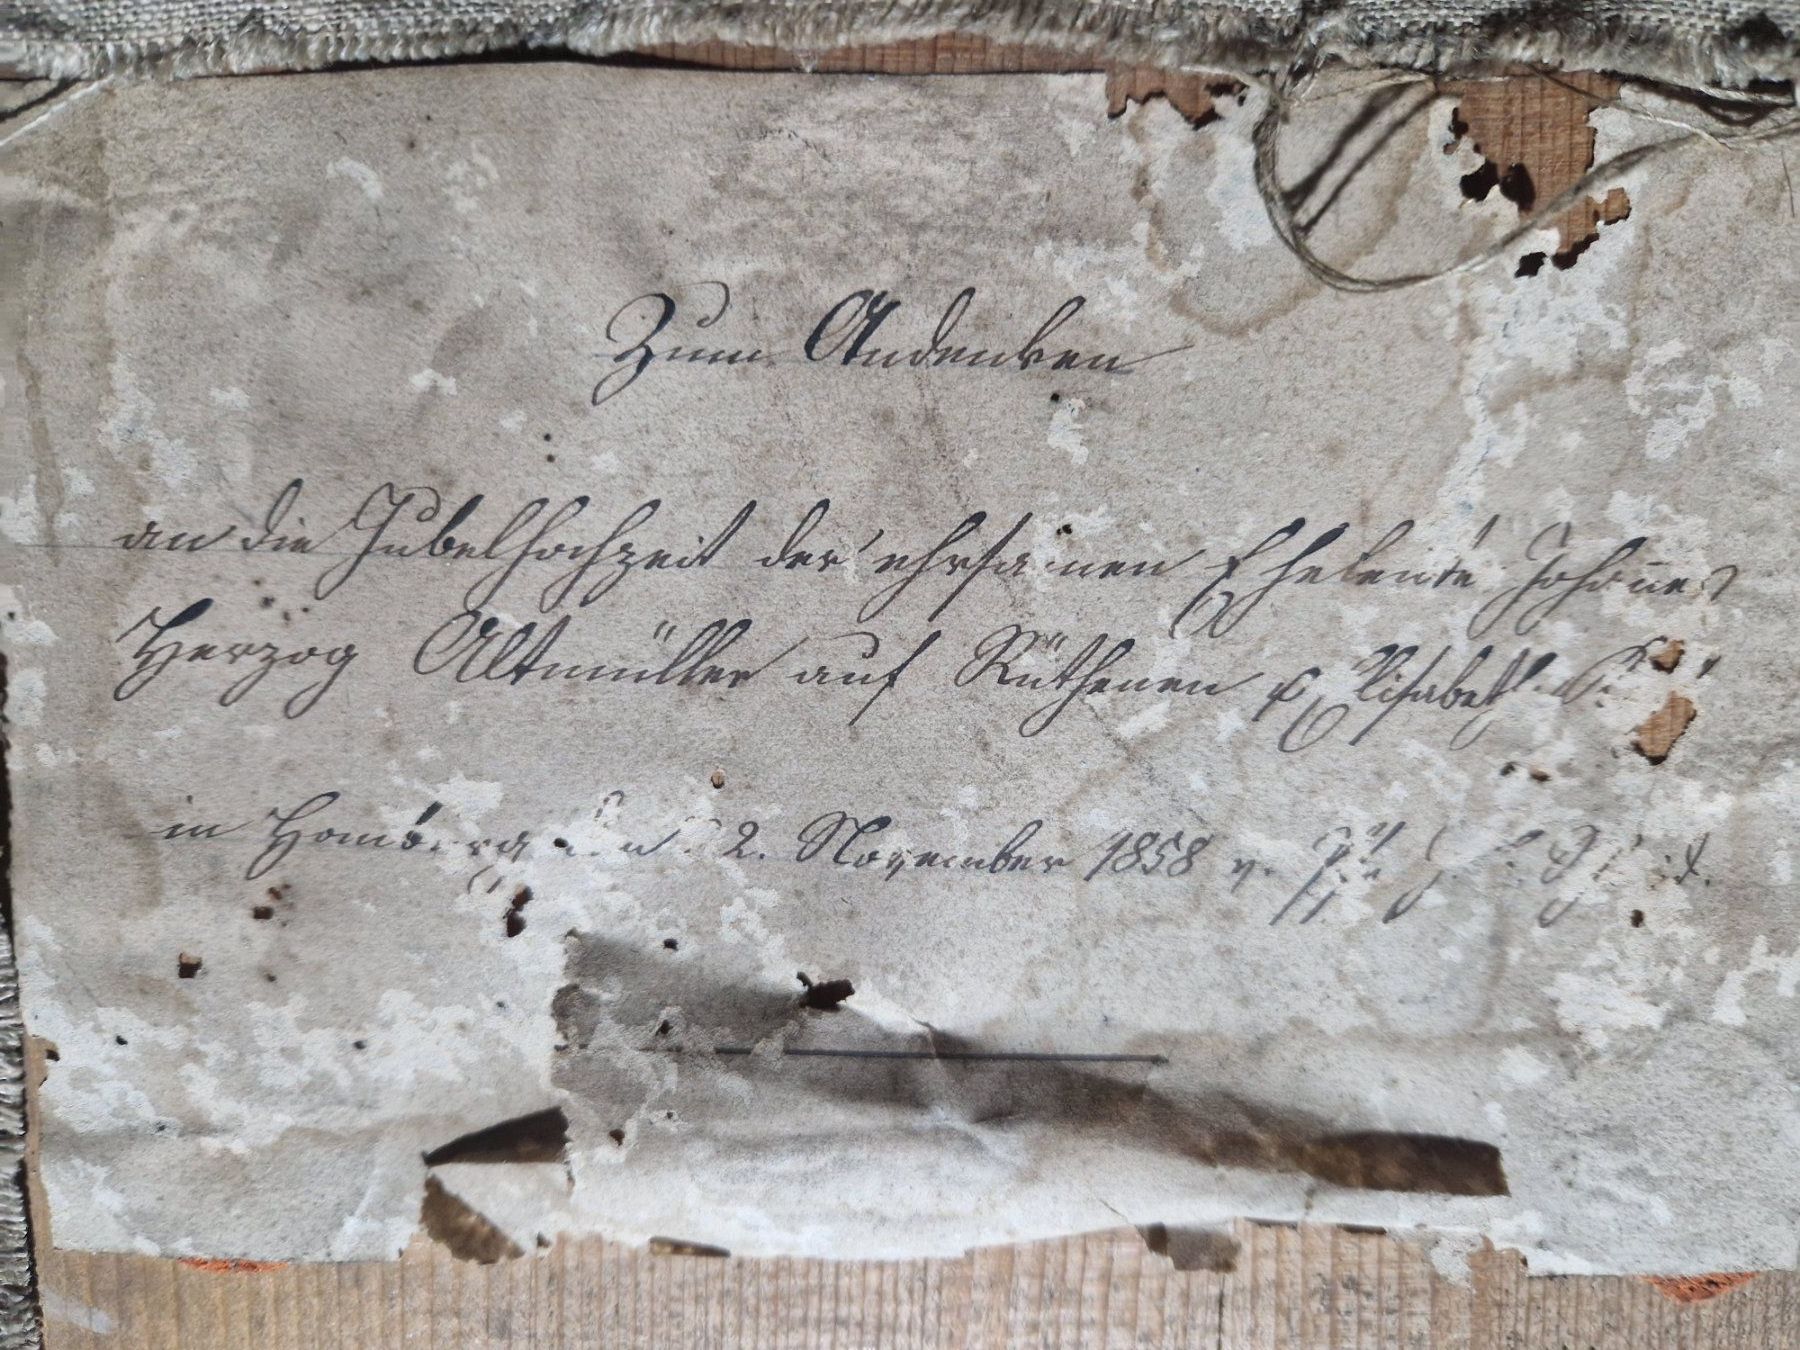 Zum Andenken
an die Jubelhochzeit der ehrsamen Eheleute Johannes
Herzog Altmüller auf Rüthenen & Elisabeth
in Homberg den 2. November 1858 v.